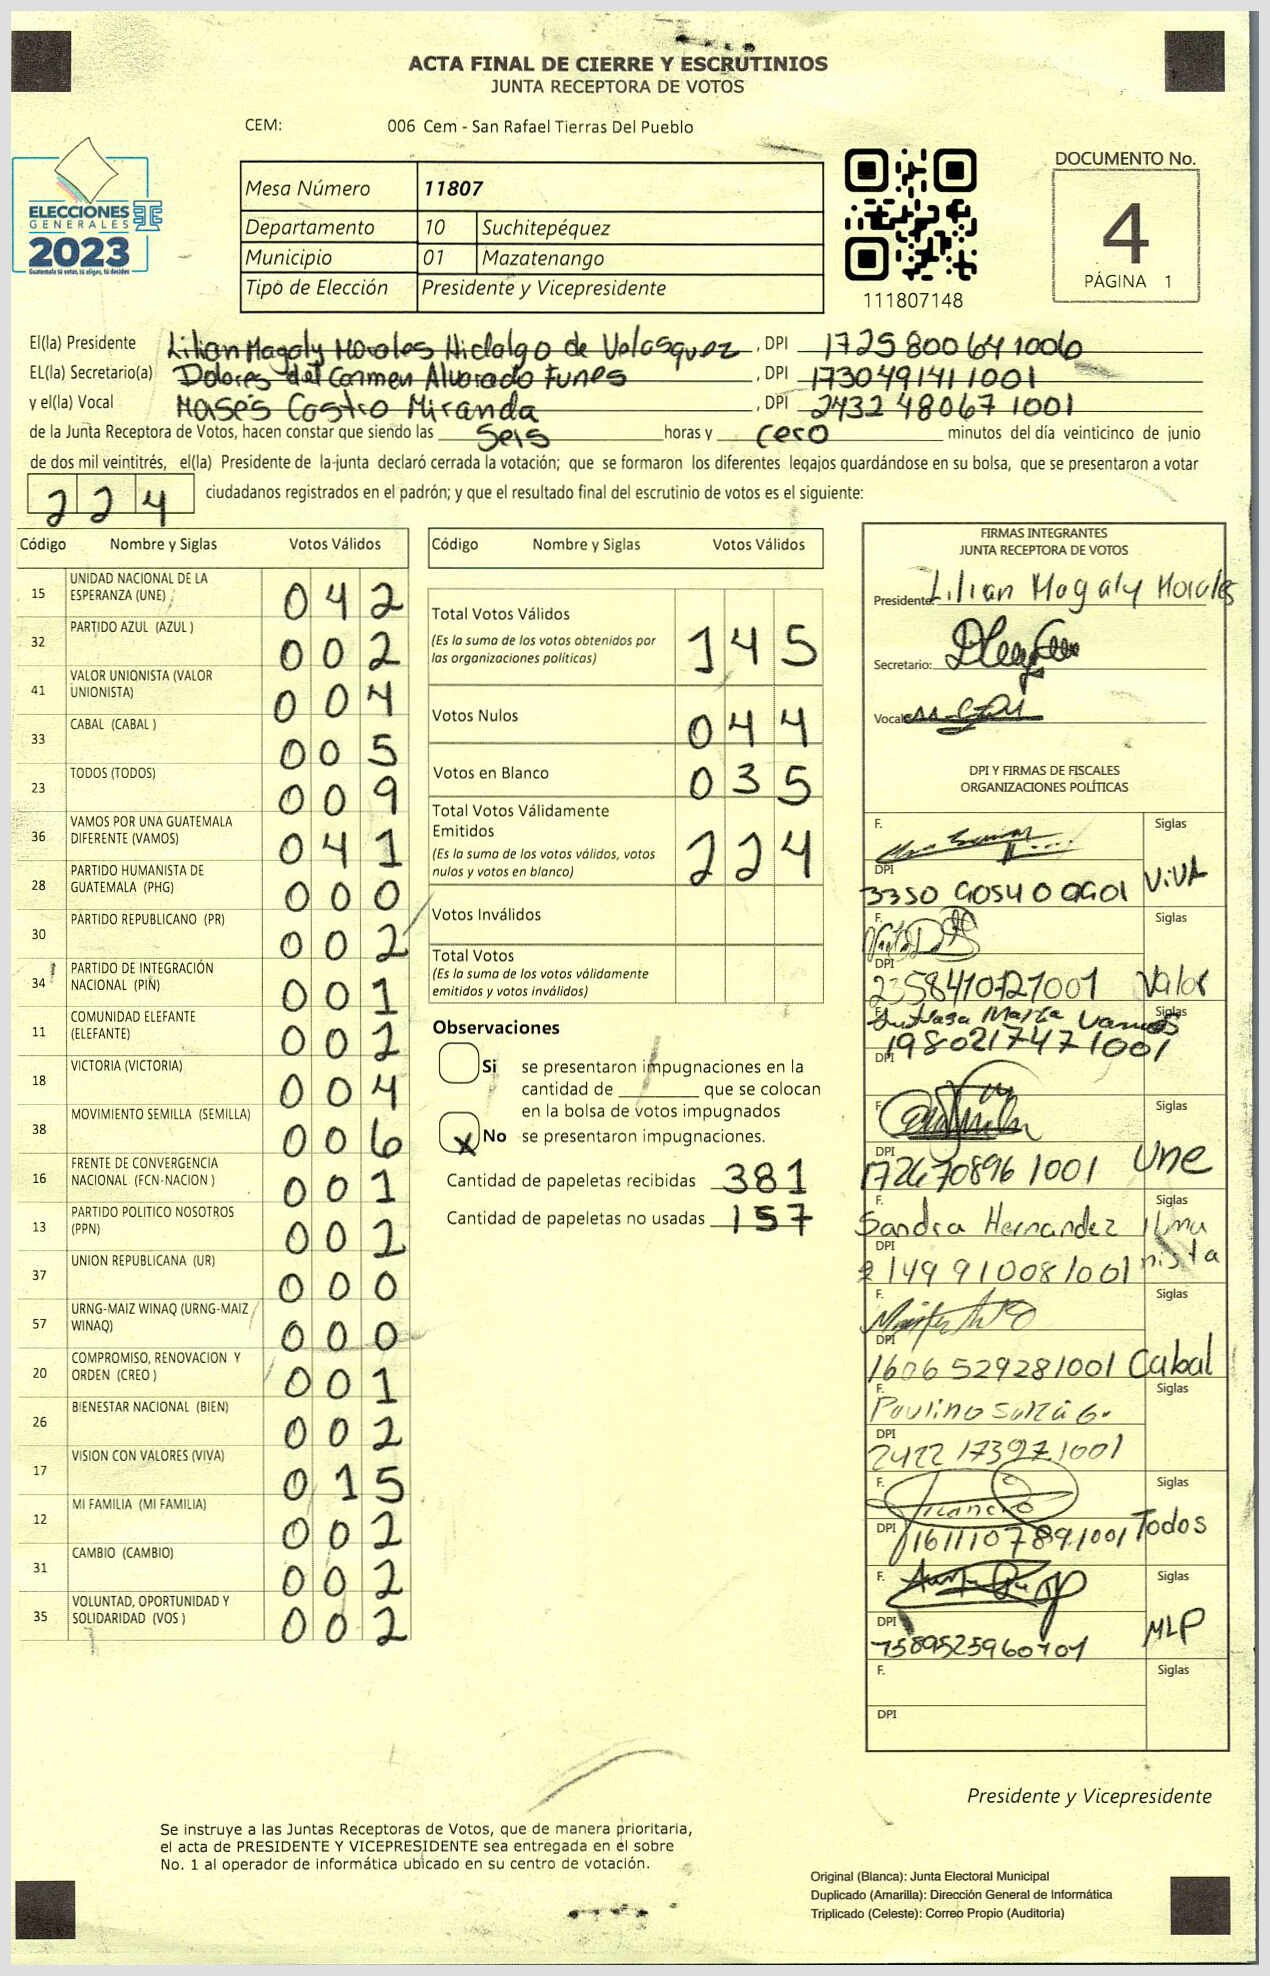 ACTA FINAL DE CIERRE Y ESCRUTINIOS
JUNTA RECEPTORA DE VOTOS
CEM: 006 Cem - San Rafael Tierras Del Pueblo
ELECCIONES
GENERALES
2023
Guatemala tú votas, tú eliges, tú decides
Mesa Número 11807
Departamento 10 Suchitepéquez
Municipio 01 Mazatenango
Tipo de Elección Presidente y Vicepresidente
111807148
DOCUMENTO No.
4
PÁGINA 1
El(la) Presidente Lilian Magaly Morales Hidalgo de Velasquez, DPI 1725800641006
EL(la) Secretario(a) Dolores del Carmen Alvarado Funes, DPI 1730491411001
y el(la) Vocal Moses Castro Miranda, DPI 2432480671001
de la Junta Receptora de Votos, hacen constar que siendo las seis horas y cero minutos del día veinticinco de junio
de dos mil veintitrés, el(la) Presidente de la junta declaró cerrada la votación; que se formaron los diferentes legajos guardándose en su bolsa, que se presentaron a votar
224 ciudadanos registrados en el padrón; y que el resultado final del escrutinio de votos es el siguiente:
Código Nombre y Siglas Votos Válidos
15 UNIDAD NACIONAL DE LA ESPERANZA (UNE) 042
32 PARTIDO AZUL (AZUL ) 002
41 VALOR UNIONISTA (VALOR UNIONISTA) 004
33 CABAL (CABAL ) 005
23 TODOS (TODOS) 009
36 VAMOS POR UNA GUATEMALA DIFERENTE (VAMOS) 041
28 PARTIDO HUMANISTA DE GUATEMALA (PHG) 000
30 PARTIDO REPUBLICANO (PR) 002
34 PARTIDO DE INTEGRACIÓN NACIONAL (PIN) 001
11 COMUNIDAD ELEFANTE (ELEFANTE) 002
18 VICTORIA (VICTORIA) 004
38 MOVIMIENTO SEMILLA (SEMILLA) 006
16 FRENTE DE CONVERGENCIA NACIONAL (FCN-NACION ) 001
13 PARTIDO POLITICO NOSOTROS (PPN) 002
37 UNION REPUBLICANA (UR) 000
57 URNG-MAIZ WINAQ (URNG-MAIZ WINAQ) 000
20 COMPROMISO, RENOVACION Y ORDEN (CREO ) 001
26 BIENESTAR NACIONAL (BIEN) 002
17 VISION CON VALORES (VIVA) 015
12 MI FAMILIA (MI FAMILIA) 002
31 CAMBIO (CAMBIO) 002
35 VOLUNTAD, OPORTUNIDAD Y SOLIDARIDAD (VOS ) 002
Código Nombre y Siglas Votos Válidos
Total Votos Válidos 145
(Es la suma de los votos obtenidos por
las organizaciones políticas)
Votos Nulos 044
Votos en Blanco 035
Total Votos Válidamente
Emitidos 224
(Es la suma de los votos válidos, votos
nulos y votos en blanco)
Votos Inválidos
Total Votos
(Es la suma de los votos válidamente
emitidos y votos inválidos)
Observaciones
Si se presentaron impugnaciones en la
cantidad de ________ que se colocan
en la bolsa de votos impugnados
X No se presentaron impugnaciones.
Cantidad de papeletas recibidas 381
Cantidad de papeletas no usadas 157
FIRMAS INTEGRANTES
JUNTA RECEPTORA DE VOTOS
Presidente: Lilian Magaly Morales
Secretario:
Vocal:
DPI Y FIRMAS DE FISCALES
ORGANIZACIONES POLÍTICAS
F. Siglas
DPI 3350 90540 0901 ViVA
F. Siglas
DPI 2358410721001 Valor
F. María Vamos Siglas
DPI 1980217471001
F. Siglas
DPI 1726708961001 Une
F. Sandra Hernandez Siglas
DPI 2149910081001
F. Siglas
DPI 1606529281001 Cabal
F. Paulino Siglas
DPI 2422173971001
F. Siglas
DPI 1611107891001 Todos
F. Siglas
DPI MLP
F. Siglas
DPI
Presidente y Vicepresidente
Se instruye a las Juntas Receptoras de Votos, que de manera prioritaria,
el acta de PRESIDENTE Y VICEPRESIDENTE sea entregada en el sobre
No. 1 al operador de informática ubicado en su centro de votación.
Original (Blanca): Junta Electoral Municipal
Duplicado (Amarilla): Dirección General de Informática
Triplicado (Celeste): Correo Propio (Auditoria)